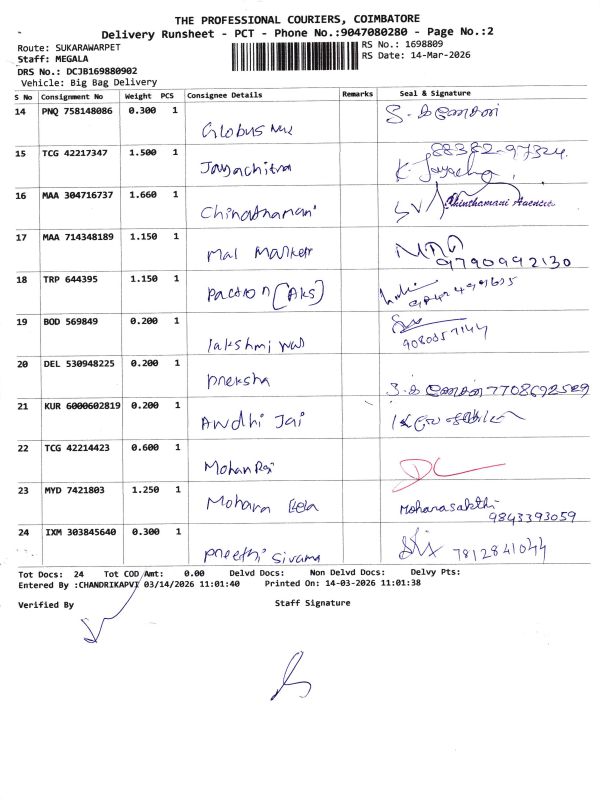 THE PROFESSIONAL COURIERS, COIMBATORE
Delivery Runsheet - PCT - Phone No.:9047080280 - Page No.:2
Route: SUKARAWARPET RS No.: 1698809
Staff: MEGALA RS Date: 14-Mar-2026
DRS No.: DCJB169880902
Vehicle: Big Bag Delivery
S No Consignment No Weight PCS Consignee Details Remarks Seal & Signature
14 PNQ 758148086 0.300 1
Globus
15 TCG 42217347 1.500 1 88382-97324
Jayachitra K. Jayachitra
16 MAA 304716737 1.660 1
Chinathamani Chinthamani Agencies
17 MAA 714348189 1.150 1
Mal Market 9790992130
18 TRP 644395 1.150 1
(AKS)
19 BOD 569849 0.200 1
lakshmi
20 DEL 530948225 0.200 1
Preksha 7708692589
21 KUR 6000602819 0.200 1
Andhi Jai
22 TCG 42214423 0.600 1
Mohan Raj
23 MYD 7421803 1.250 1
Mohana Mohanasakthi
9843393059
24 IXM 303845640 0.300 1
Preethi Sivama 7812841044
Tot Docs: 24 Tot COD Amt: 0.00 Delvd Docs: Non Delvd Docs: Delvy Pts:
Entered By :CHANDRIKAPVI 03/14/2026 11:01:40 Printed On: 14-03-2026 11:01:38
Verified By Staff Signature